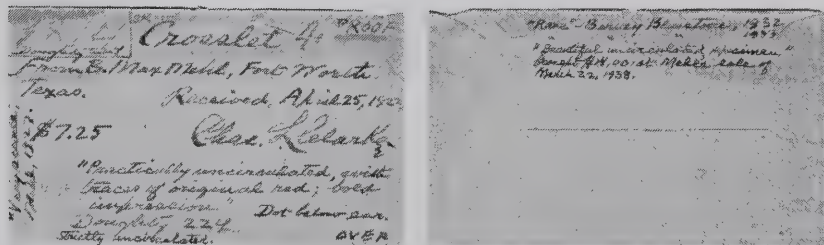 Crosslet 4. PROOF
Doughty 224
from B. Max Mehl, Fort Worth.
Texas.
Received, April 25, 192
$7.25
Chas.
"Very scarce."
Mehl, 1922.
"Practically uncirculated, with
traces of original red; bold
impression."
Dot below ear.
Doughty 224.
Strictly uncirculated.
OVER
"Rare" - 1932
1933
"Beautiful uncirculated specimen"
bought at Mehl's sale of
March 22, 1938.